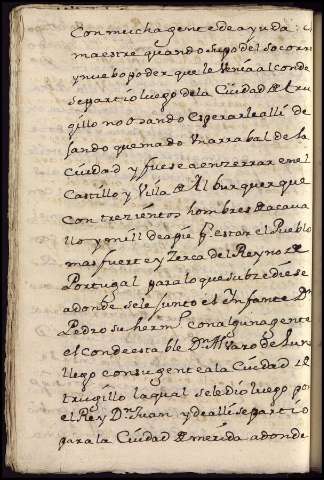 Con mucha gente de ayuda: el
maestre quando supo del socorro
y nuebo poder que le Venia al conde
se partio luego de la Ciudad de tru
gillo no osando esperarle alli de
sando quemado Vn arrabal de la
Ciudad y fuese a enzerrar en el
Castillo y Villa de Alburquerque
con trezientos hombres de acava
llo y mill de a pie pr estar el Pueblo
mas fuerte y Zerca del Reyno de
Portugal para lo que subzediese
adonde se le junto el Infante Dn
Pedro su herm.o con alguna gente
el Condeestable Dn Alvaro de Lun
llego con su gente a la Ciudad de
trugillo la qual se le dio luego por
el Rey Dn Juan y de alli se partio
para la Ciudad de merida adonde